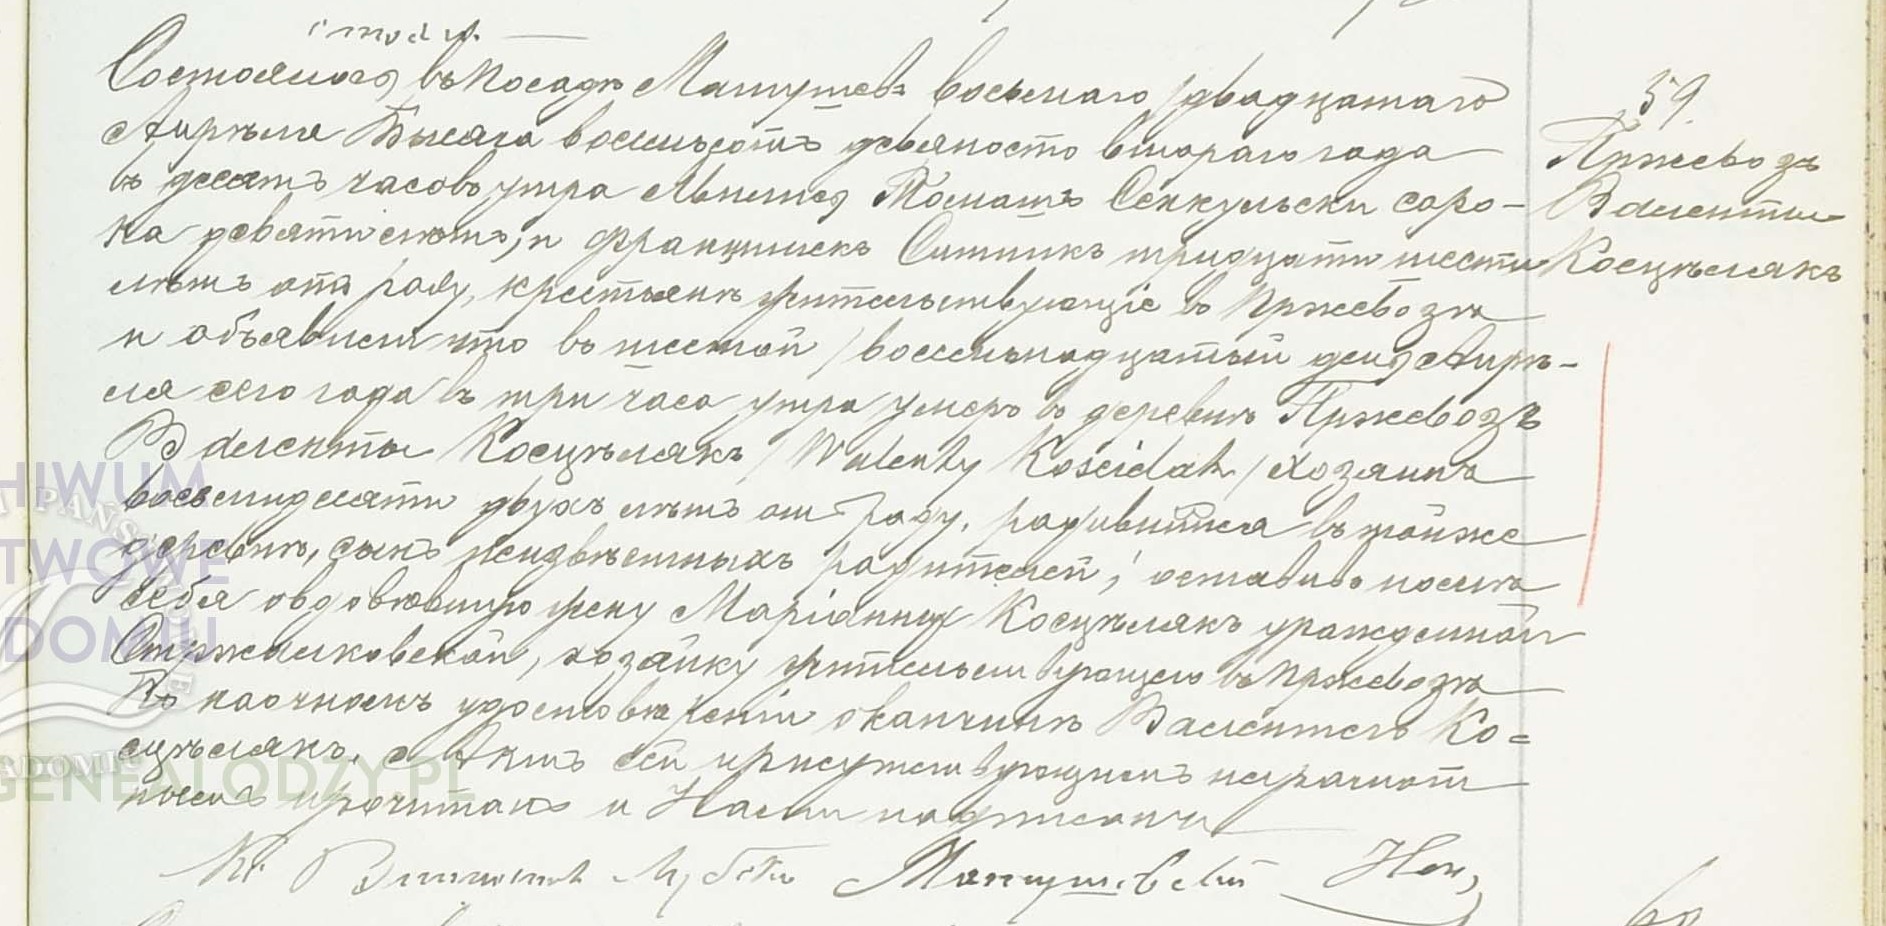 59.
Пржевозъ
Валенты
Косцѣлякъ
Состоялося въ Посадѣ Магнушевъ восьмаго / двадцатаго
Апрѣля Тысяча восемьсотъ девяносто втораго года
въ десять часовъ утра Явились Томашъ Секульски соро-
ка девяти лѣтъ, и Францишекъ Ситникъ тридцати шести
лѣтъ отъ роду, крестьяне жительствующіе в Пржевозѣ
и объявили что въ шестой / восемьнадцатый день Апрѣ-
ля сего года въ три часа утра умеръ в деревнѣ Пржевозъ
Валенты Косцѣлякъ / Walenty Kościelak / хозяинъ
восемидесяти двухъ лѣтъ отъ роду, родившійся въ тойже
деревнѣ, сынъ неизвѣстныхъ родителей, оставивъ послѣ
себя овдовѣвшую жену Маріанну Косцѣлякъ урожденной
хозяйку жительствующею въ Пржевозѣ
По наочномъ удостовѣреніи о кончинѣ Валентего Ко=
сцѣлякъ, Актъ сей присутствующимъ неграмот
нымъ прочитанъ и Нами подписанъ